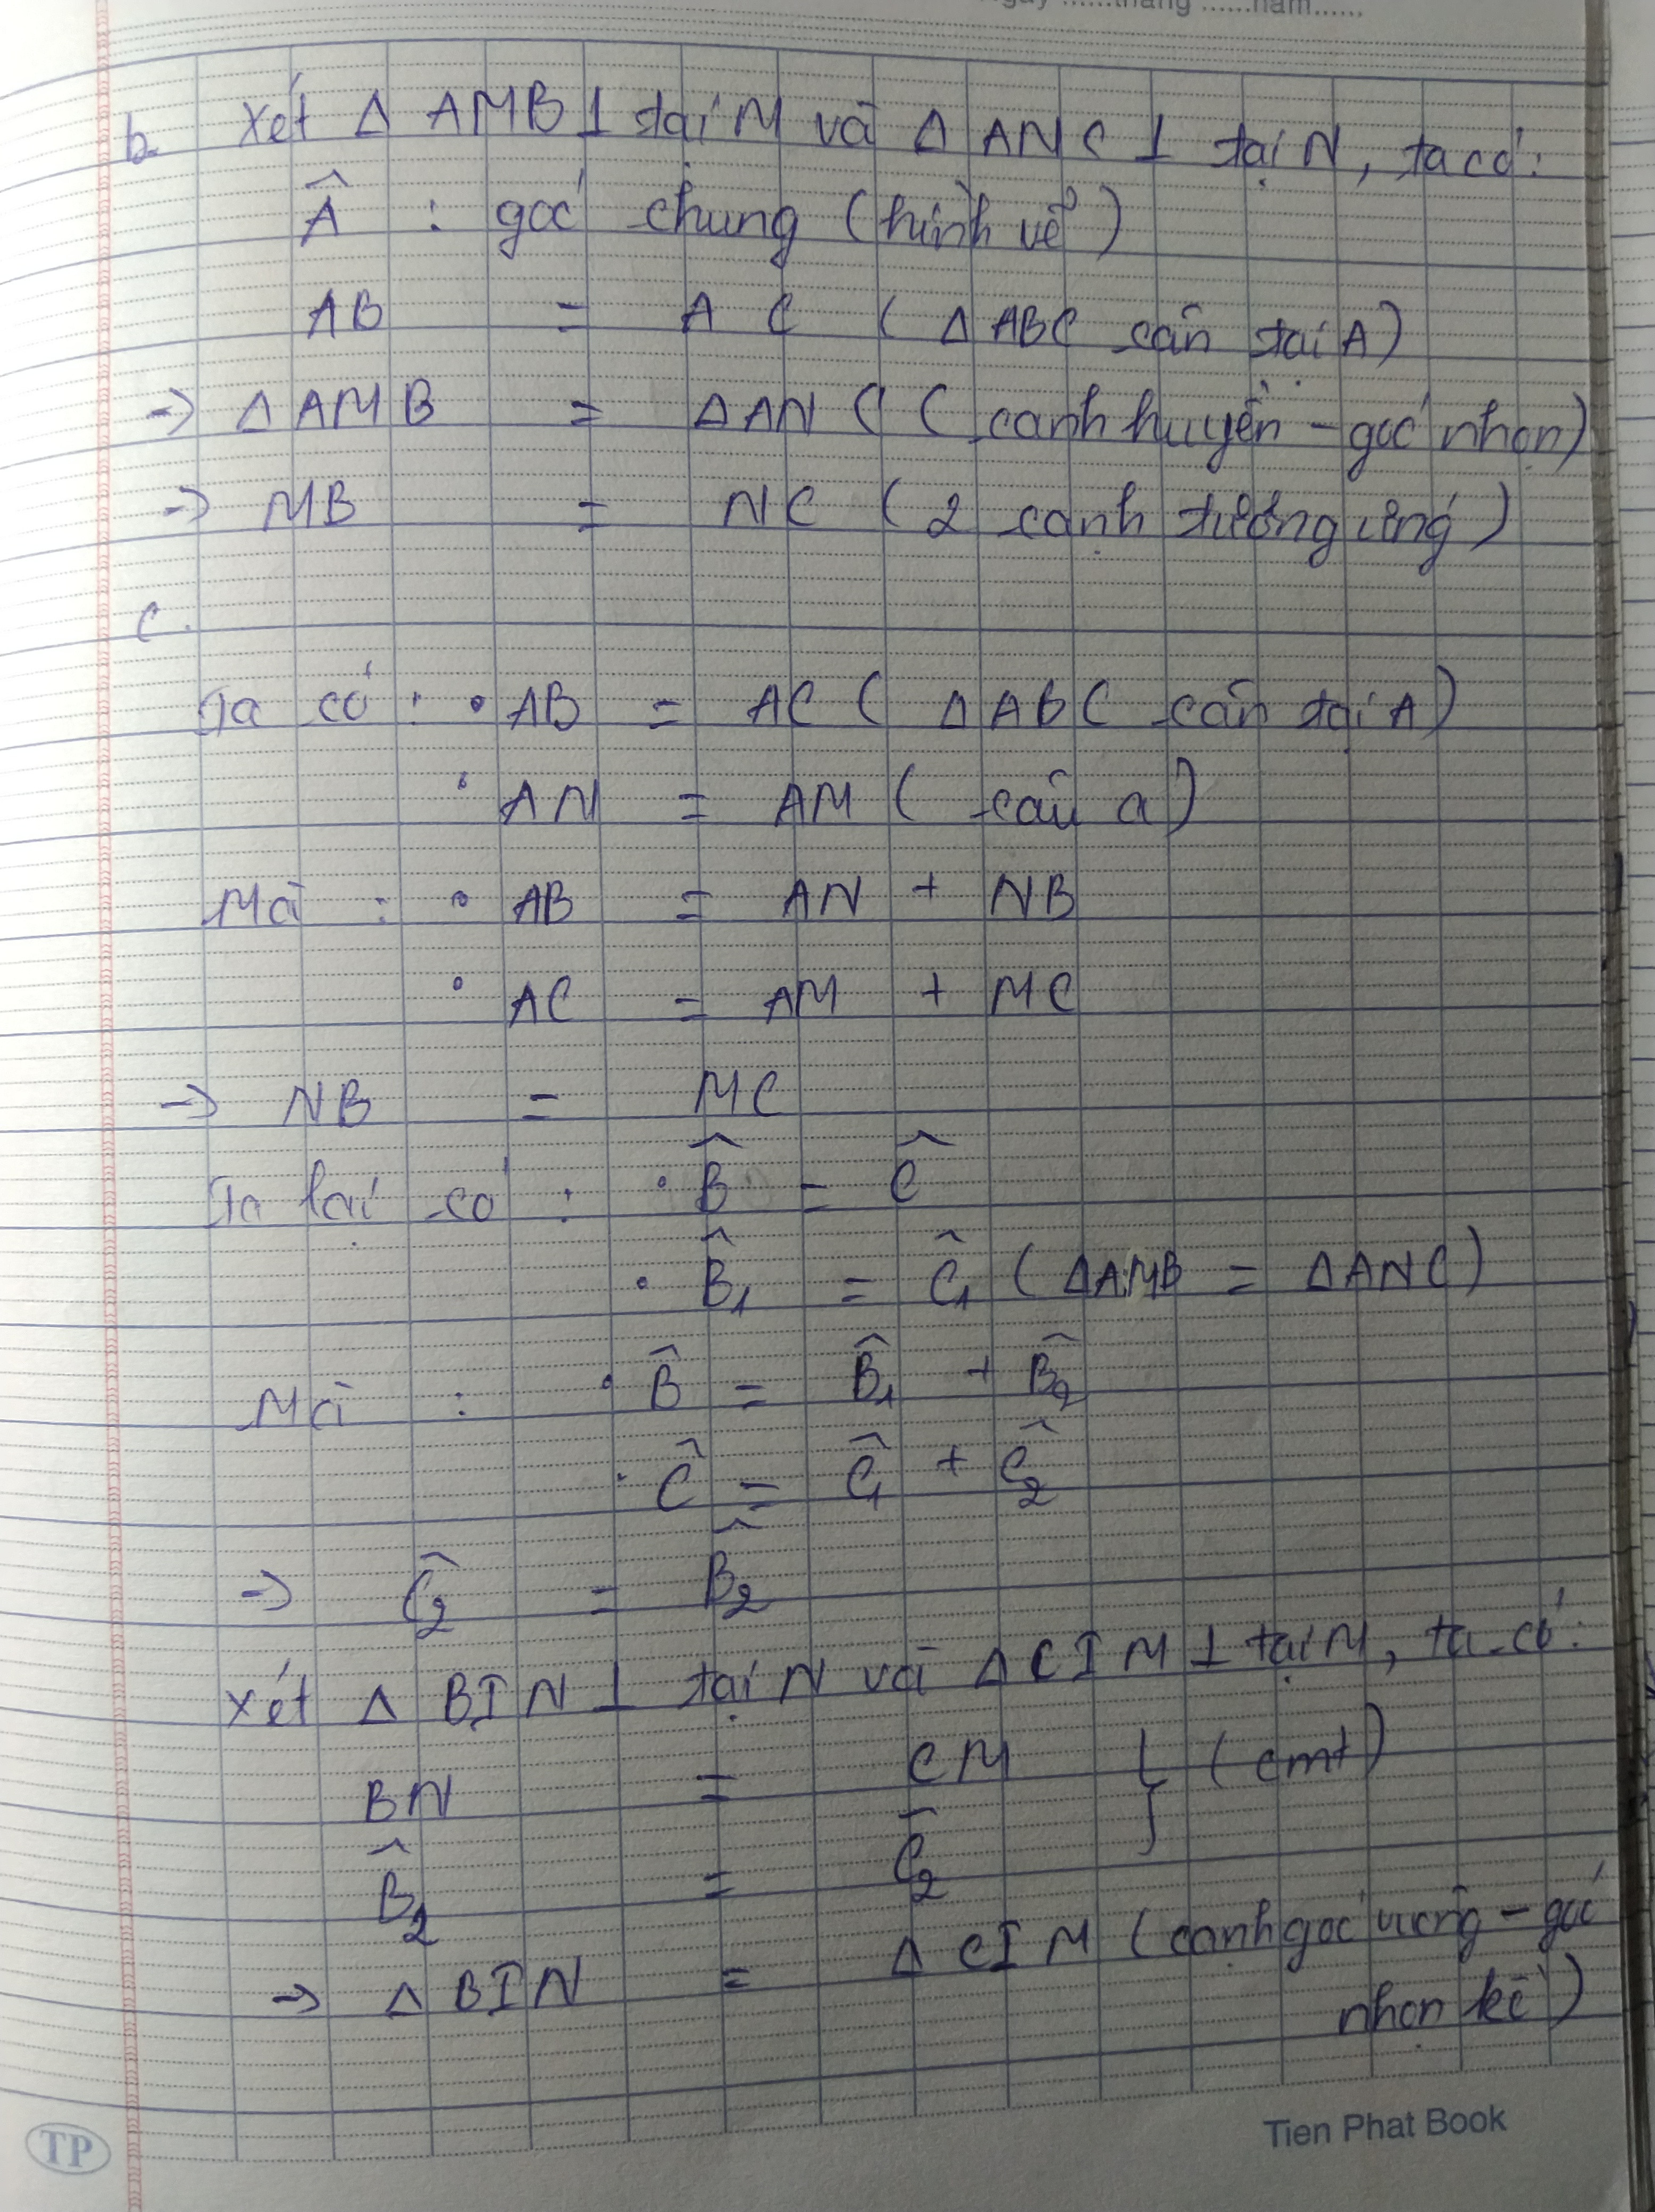 Ngày ......tháng ......năm......
b. Xét Δ AMB ⊥ tại M và Δ ANC ⊥ tại N, ta có:
Â : góc chung (hình vẽ)
AB = AC ( Δ ABC cân tại A)
→ Δ AMB = Δ ANC ( cạnh huyền - góc nhọn)
→ MB = NC ( 2 cạnh tương ứng )
c.
Ta có : • AB = AC ( Δ ABC cân tại A)
• AN = AM ( câu a )
Mà : • AB = AN + NB
• AC = AM + MC
→ NB = MC
Ta lại có : • B̂ = Ĉ
• B̂₁ = Ĉ₁ ( ΔAMB = ΔANC )
Mà : • B̂ = B̂₁ + B̂₂
• Ĉ = Ĉ₁ + Ĉ₂
→ Ĉ₂ = B̂₂
Xét Δ BIN ⊥ tại N và Δ CIM ⊥ tại M, ta có:
BN = CM } (cmt)
B̂₂ = Ĉ₂
→ Δ BIN = Δ CIM ( cạnh góc vuông - góc
nhọn kề )
TP
Tien Phat Book